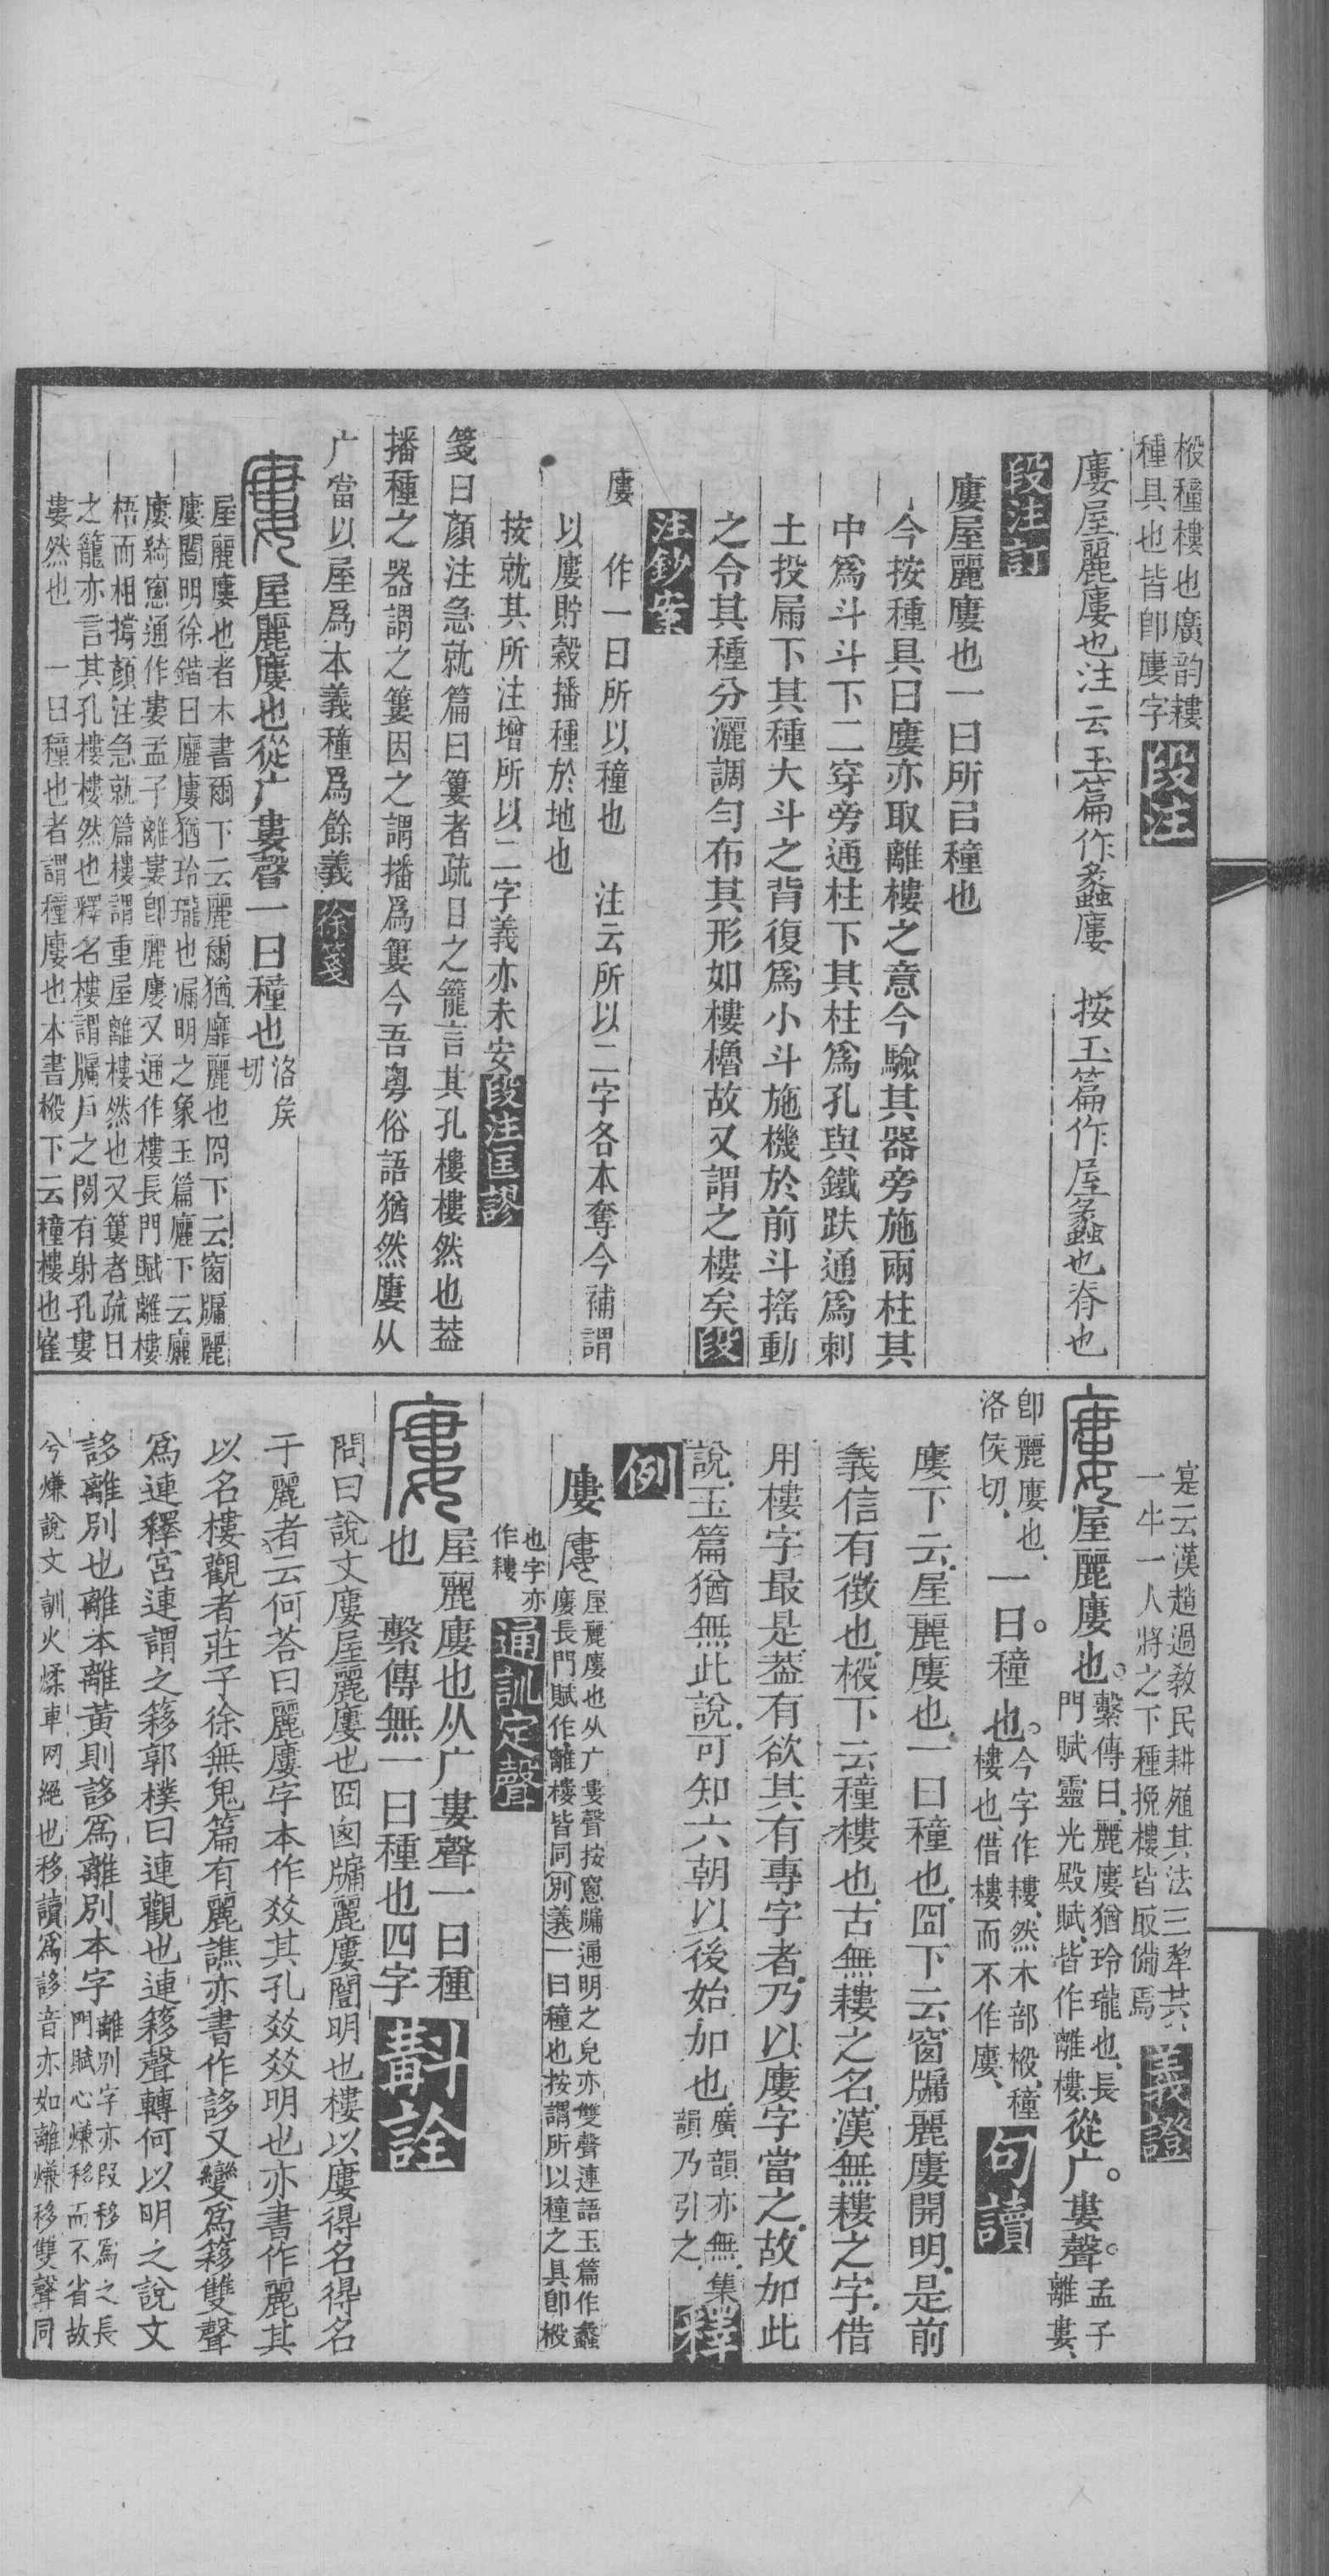 椴穜樓也廣韵耬
種具也皆卽廔字段注
廔屋麗廔也注云玉篇作蠡廔　按玉篇作屋蠡也脊也
段注訂
廔屋麗廔也一曰所㠯穜也
今按種具曰廔亦取離樓之意今驗其器旁施兩柱其
中爲斗斗下二穿旁通柱下其柱爲孔與鐵趺通爲刺
土投屚下其種大斗之背復爲小斗施機於前斗搖動
之令其種分灑調勻布其形如樓櫓故又謂之樓矣段
注鈔案
廔　作一曰所以穜也　注云所以二字各本奪今補謂
以廔貯榖播種於地也
按就其所注增所以二字義亦未安段注匡謬
箋曰顏注急就篇曰簍者疏目之籠言其孔樓樓然也葢
播種之器謂之簍因之謂播爲簍今吾粤俗語猶然廔从
广當以屋爲本義穜爲餘義徐箋
屋麗廔也從广婁聲一曰穜也洛矦
切
屋麗廔也者木書爾下云麗爾猶靡麗也冏下云窗牖麗
廔闓明徐鍇曰廲廔猶玲瓏也漏明之象玉篇廲下云廲
廔綺窻通作婁孟子離婁卽麗廔又通作樓長門賦離樓
梧而相撐顏注急就篇樓謂重屋離樓然也又簍者疏目
之籠亦言其孔樓樓然也釋名樓謂牖戶之閒有射孔婁
婁然也　一曰穜也者謂種廔也本書椴下云穜樓也崔
寔云漢趙過敎民耕殖其法三犂共
一牛一人將之下種挽樓皆取備焉義證
屋麗廔也。繫傳曰、麗廔猶玲瓏也、長
門賦靈光殿賦、皆作離樓、從广。婁聲。孟子
離婁、
卽麗廔也、
洛侯切、一曰穜也。今字作耬、然木部椴、穜
樓也、借樓而不作廔、句讀
廔下云、屋麗廔也、一曰穜也、囧下云窗牖麗廔開明、是前
義信有徵也、椴下云穜樓也、古無耬之名、漢無耬之字、借
用樓字最是、葢有欲其有專字者、乃以廔字當之、故加此
說、玉篇猶無此說、可知六朝以後始加也、廣韻亦無、集
韻乃引之、釋
例
廔屋麗廔也从广婁聲按窻牖通明之皃亦雙聲連語玉篇作蠡
廔長門賦作離樓皆同別義一曰穜也按謂所以穜之具卽椴
也字亦
作耬通訓定聲
屋麗廔也从广婁聲一曰種
也　繫傳無一曰種也四字斠詮
問曰說文廔屋麗廔也囧囪牖麗廔闓明也樓以廔得名得名
于麗者云何荅曰麗廔字本作㸚其孔㸚㸚明也亦書作麗其
以名樓觀者莊子徐無鬼篇有麗譙亦書作謻又變爲簃雙聲
爲連釋宮連謂之簃郭樸曰連觀也連簃聲轉何以明之說文
謻離別也離本離黃則謻爲離別本字離別字亦叚移爲之長
門賦心慊移而不省故
兮慊說文訓火煣車网絕也移讀爲謻音亦如離慊移雙聲同